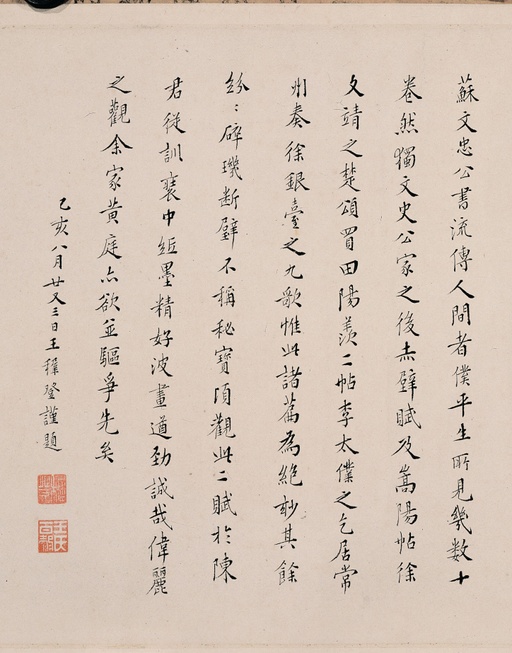 蘇文忠公書流傳人間者僕平生所見幾數十
卷然獨文史公家之後赤壁賦及嵩陽帖徐
文靖之楚頌買田陽羨二帖李太僕之乞居常
州奏徐銀臺之九歌惟此諸篇為絕妙其餘
紛〻碎璣斷璧不稱秘寶頃觀此二賦於陳
君從訓裒中紙墨精好波畫遒勁誠哉偉麗
之觀余家黃庭亦欲並驅爭先矣
乙亥八月廿又三日王穉登謹題